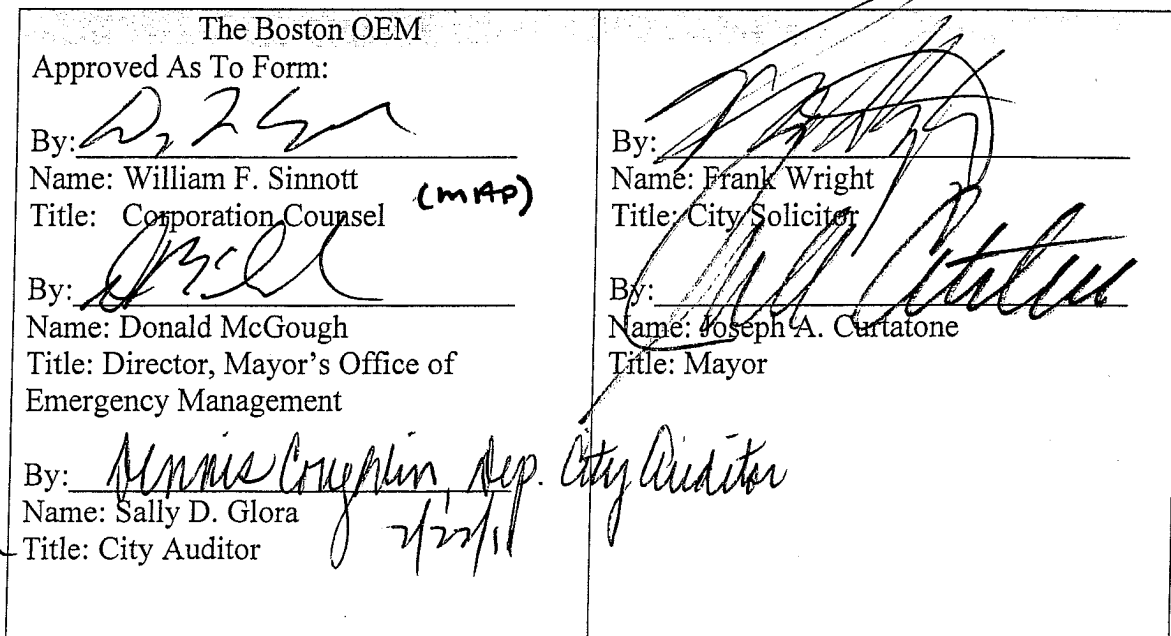 The Boston OEM
Approved As To Form:
By:
Name: William F. Sinnott
(MAP)
Title: Corporation Counsel
By:
Name: Donald McGough
Title: Director, Mayor's Office of
Emergency Management
By: Dennis Coughlin, Dep. City Auditor
Name: Sally D. Glora
Title: City Auditor
By:
Name: Frank Wright
Title: City Solicitor
By:
Name: Joseph A. Curtatone
Title: Mayor